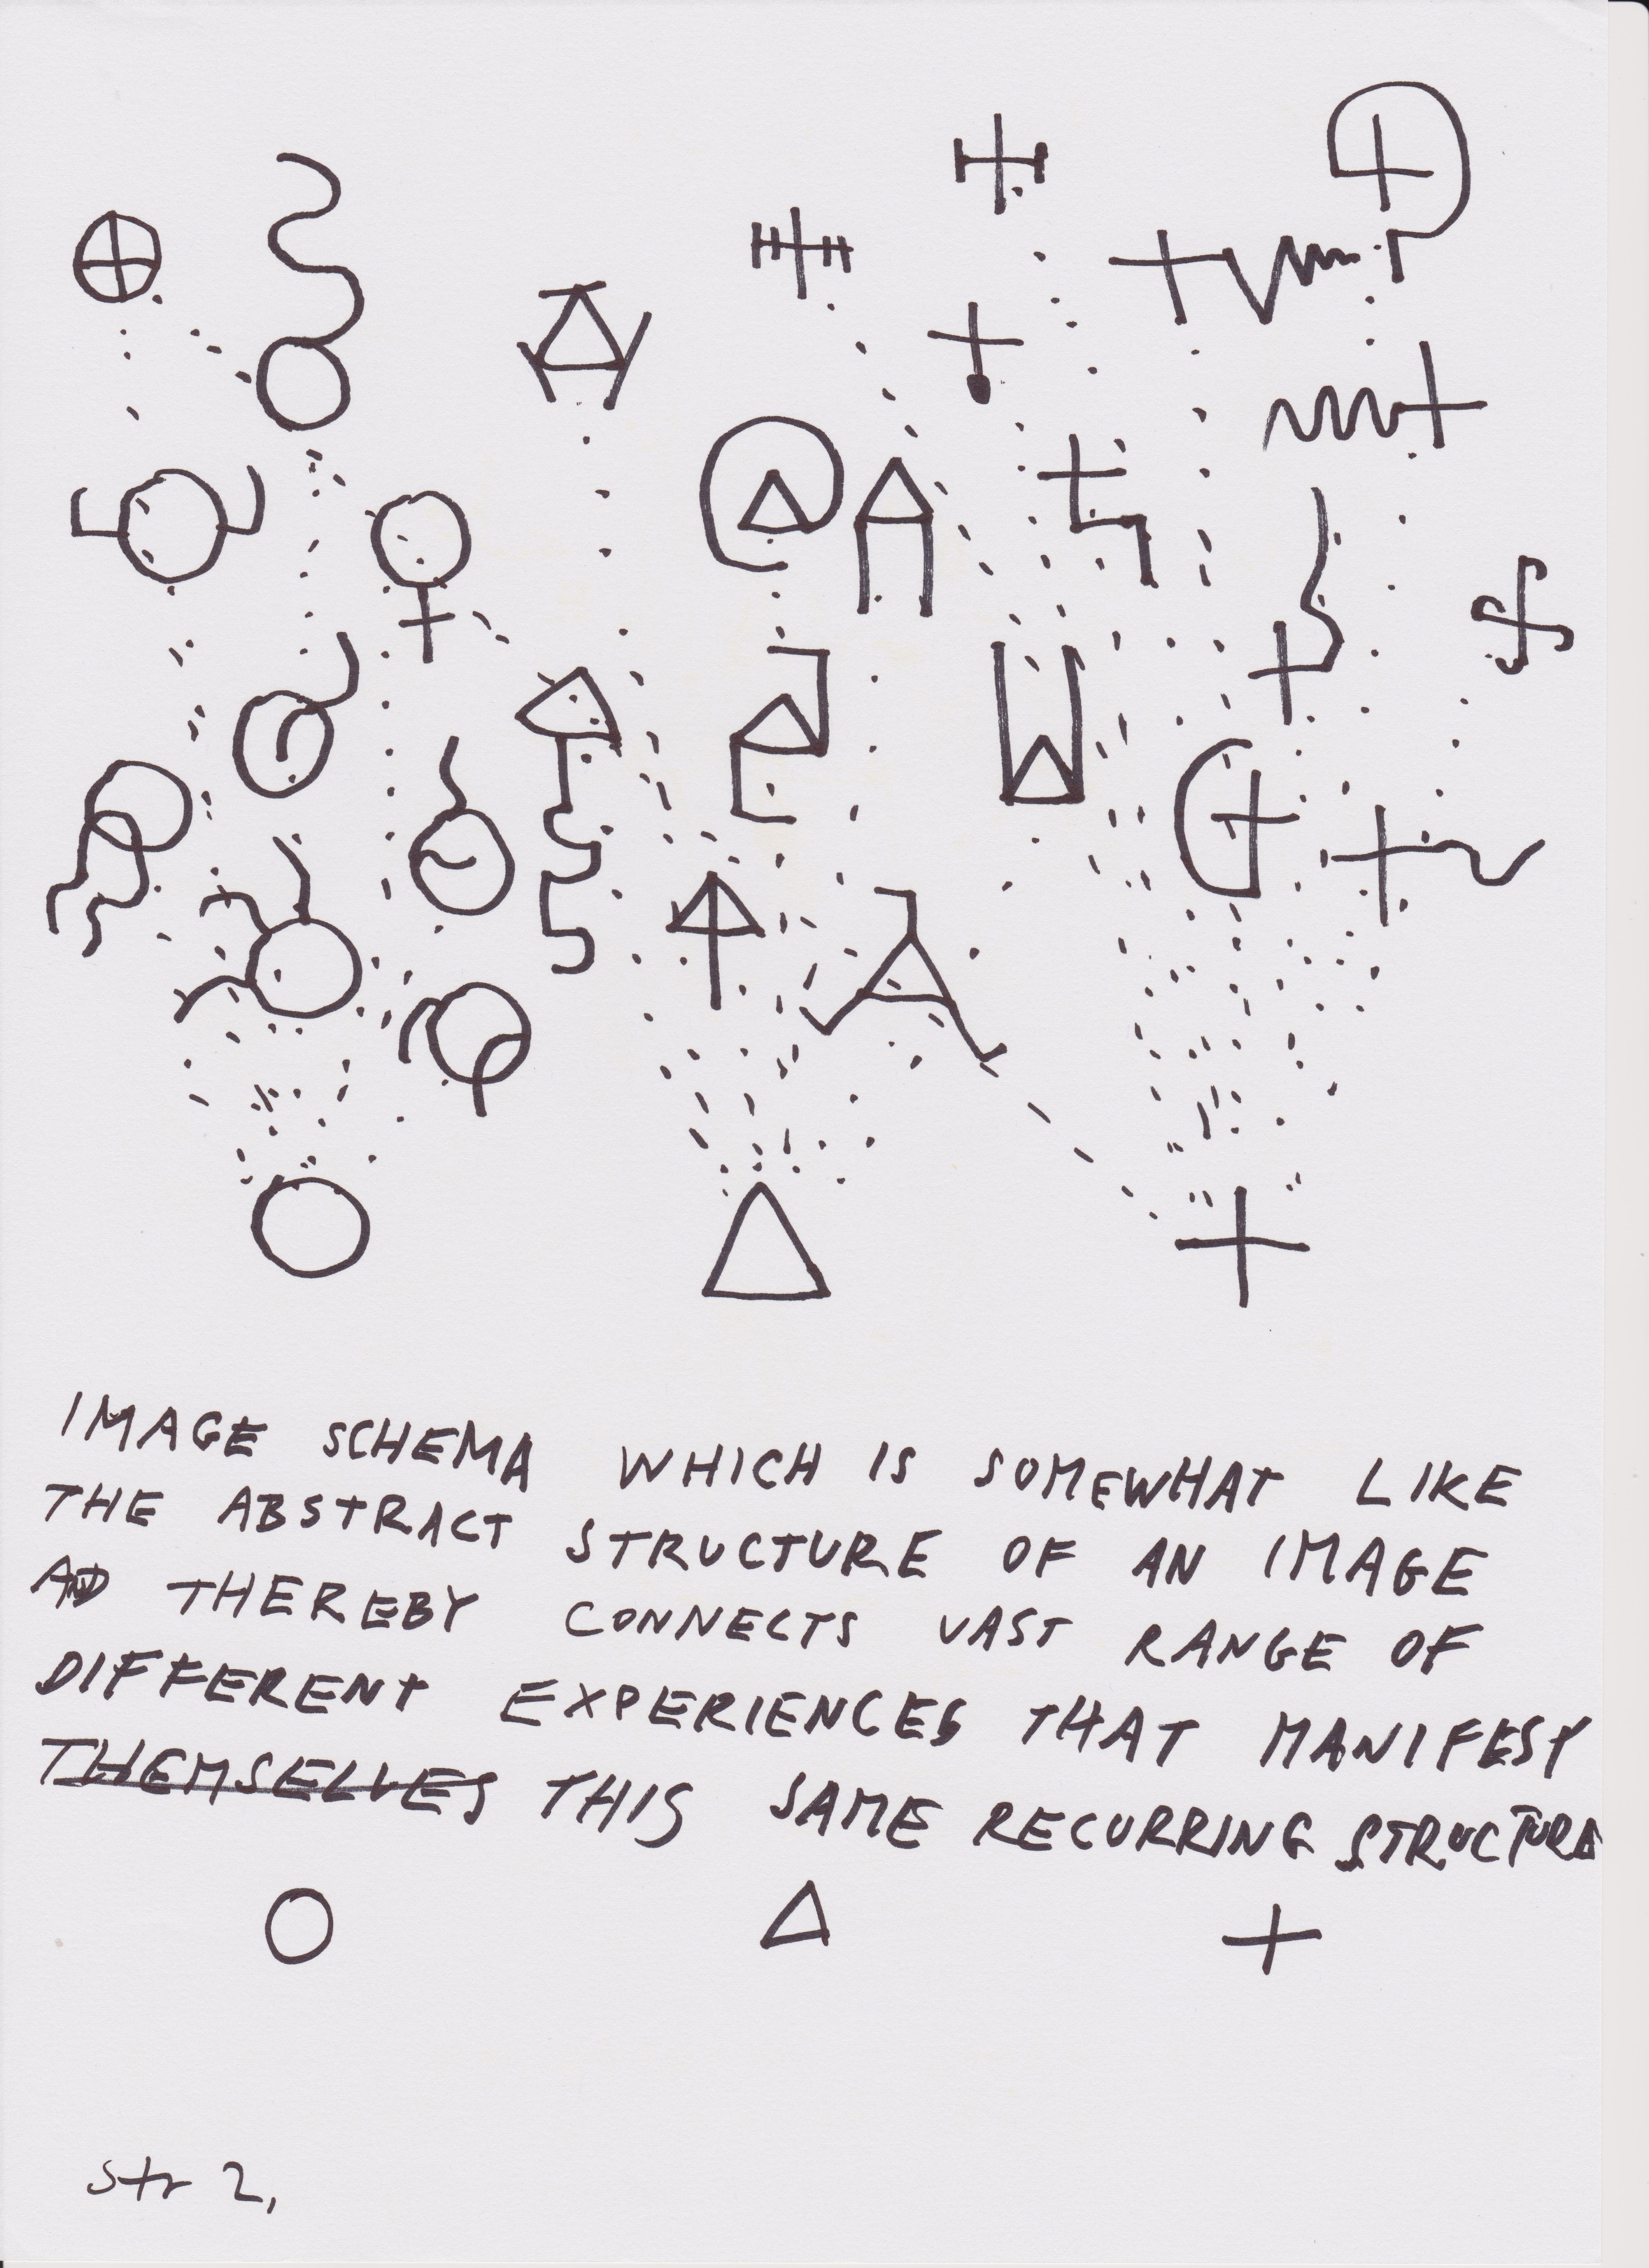 IMAGE SCHEMA WHICH IS SOMEWHAT LIKE
THE ABSTRACT STRUCTURE OF AN IMAGE
AND THEREBY CONNECTS VAST RANGE OF
DIFFERENT EXPERIENCES THAT MANIFEST
THEMSELVES THIS SAME RECURRING STRUCTURA
str 2,